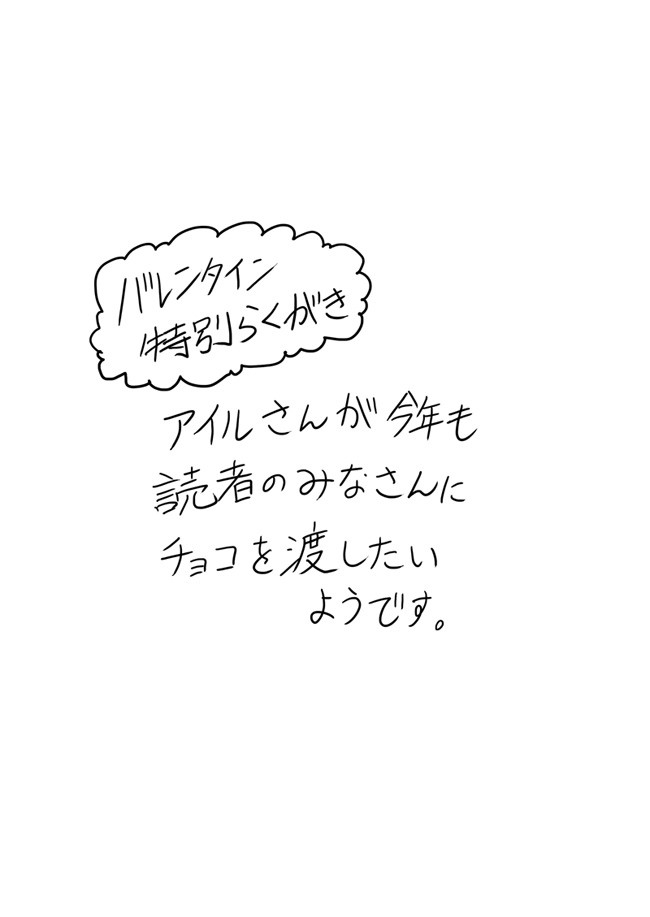 バレンタイン
特別らくがき
アイルさんが今年も
読者のみなさんに
チョコを渡したい
ようです。